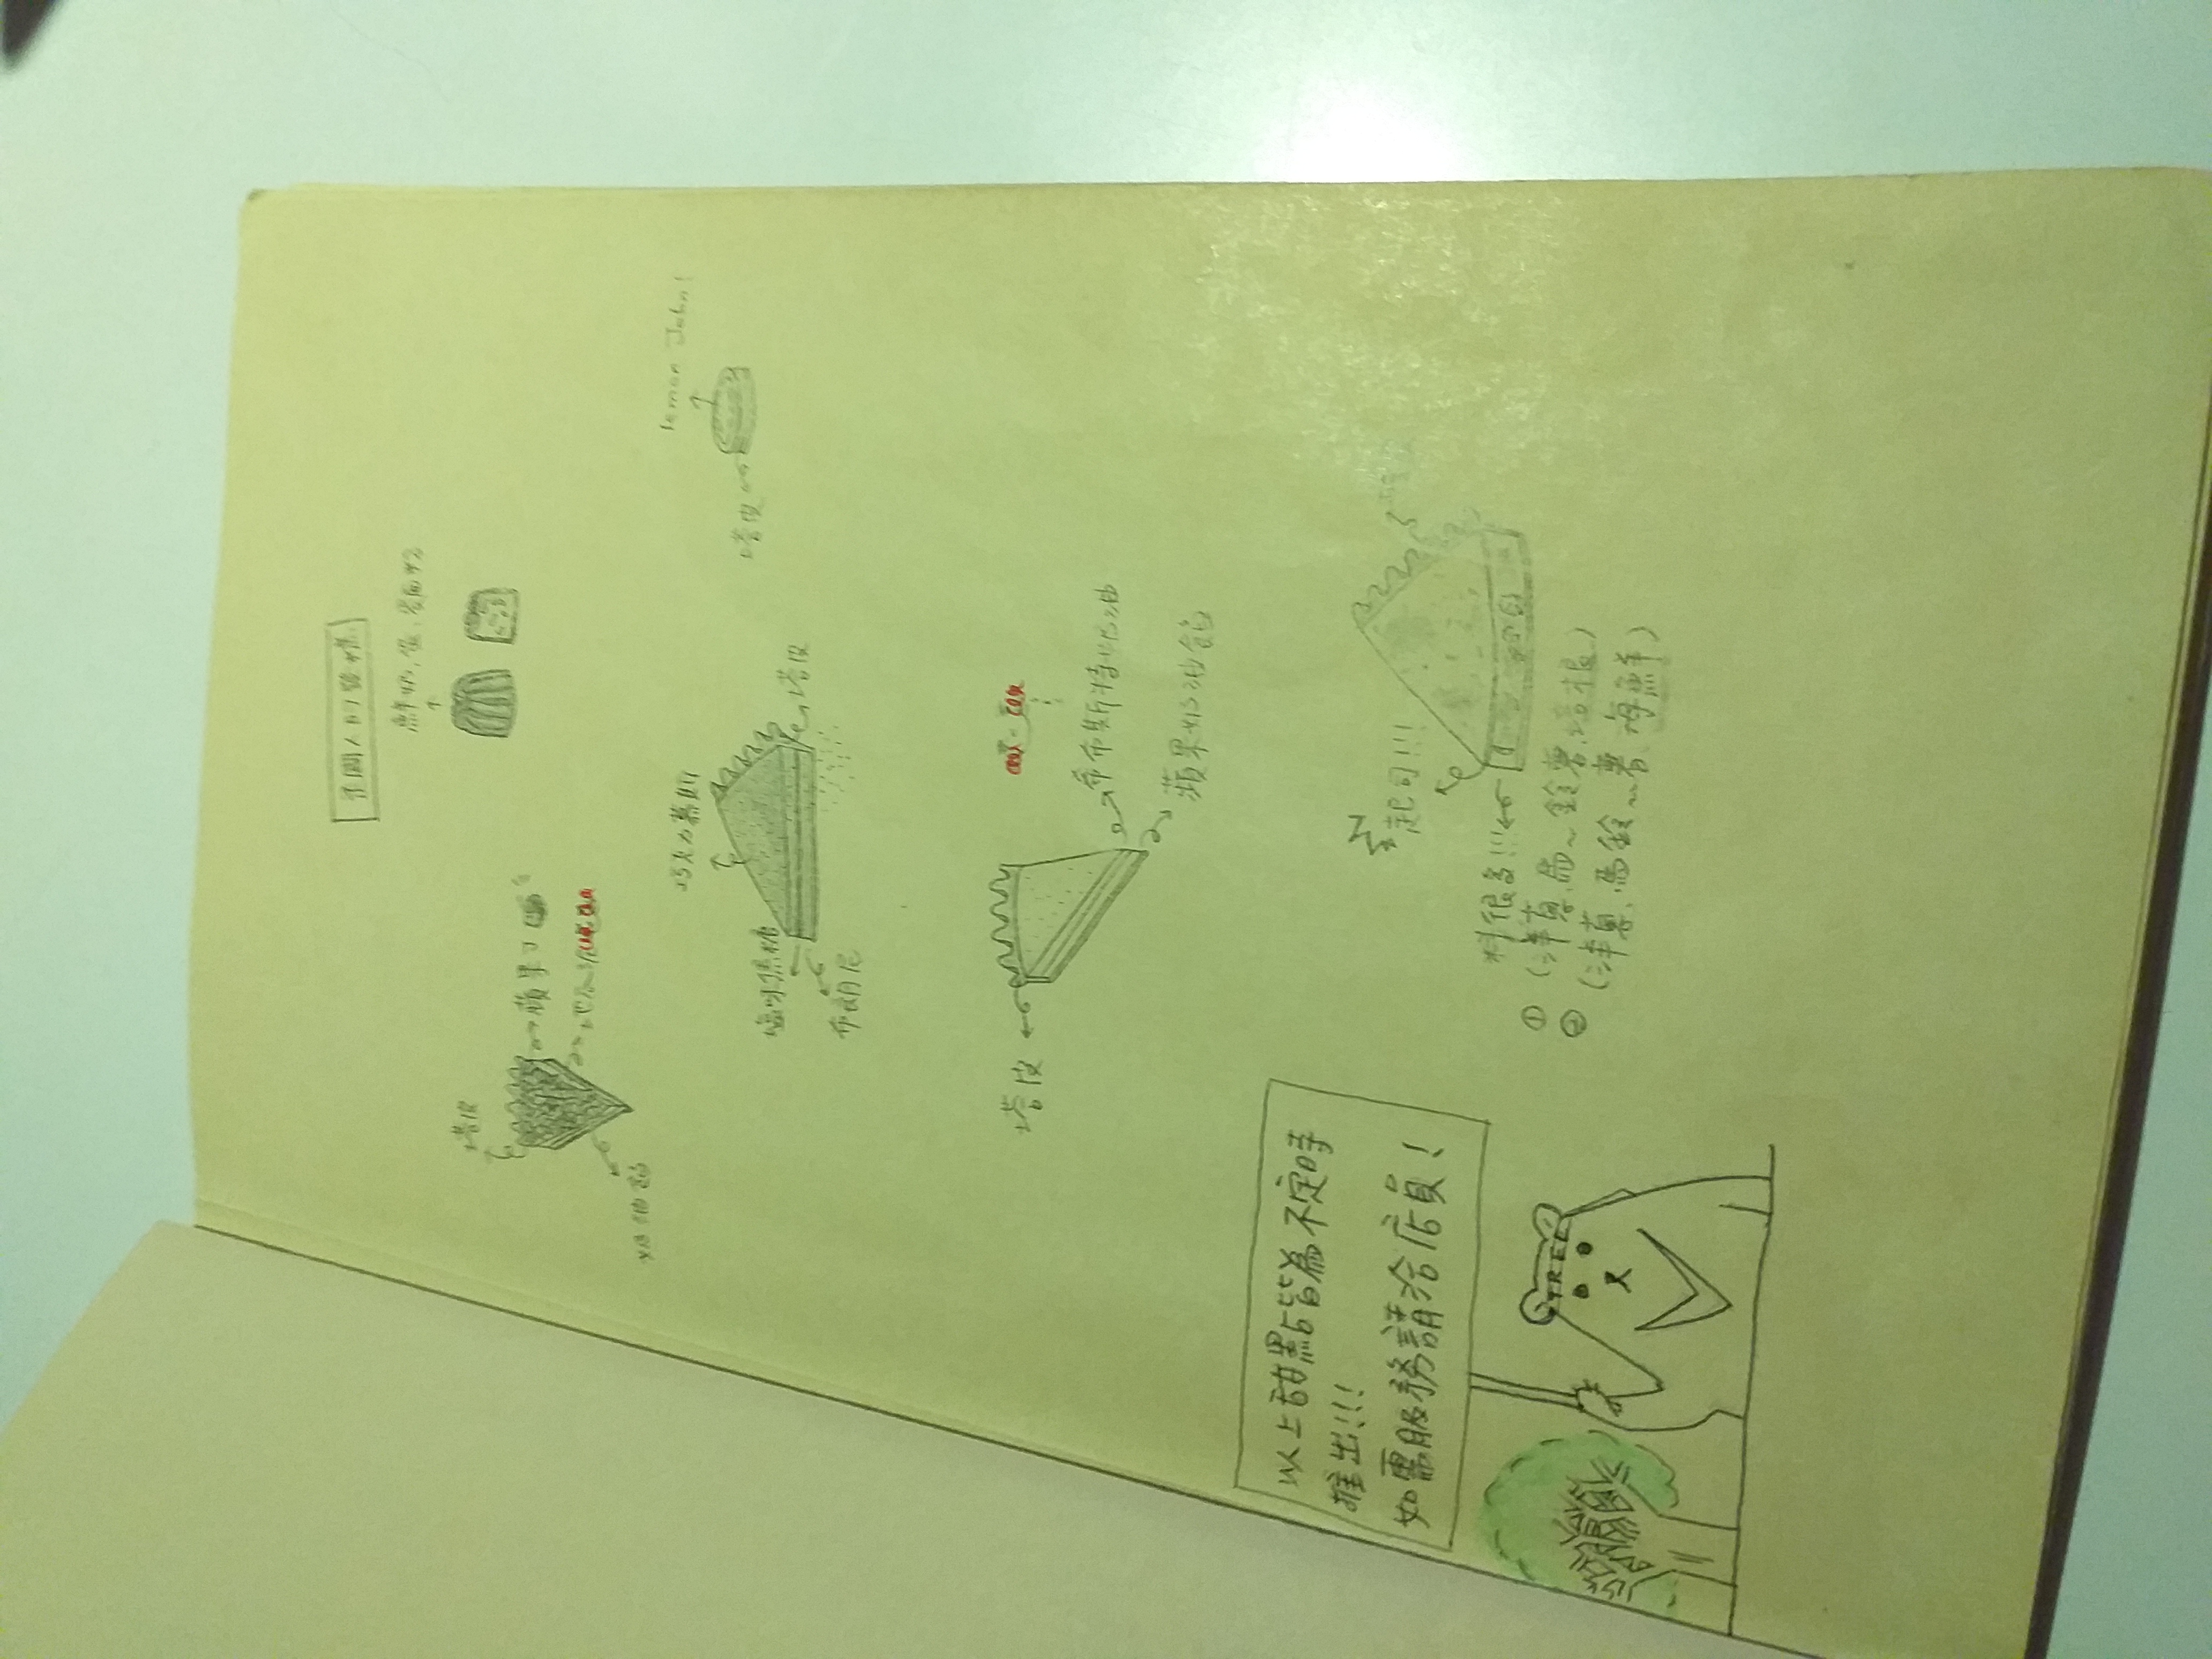 鮮奶、蛋、麵粉
塔皮
蘋果丁
地瓜泥
奶油餡
巧克力慕斯
鹽味焦糖
布朗尼
塔皮
lemon John!
塔皮
塔皮
希布斯特奶油
蘋果奶油餡
以上甜點皆為不定時
推出!!!
如需服務請洽店員!
TREE
起司!!!
料很多!!!
① (洋蔥、馬~鈴薯、培根)
② (洋蔥、馬鈴~薯、海鮮)